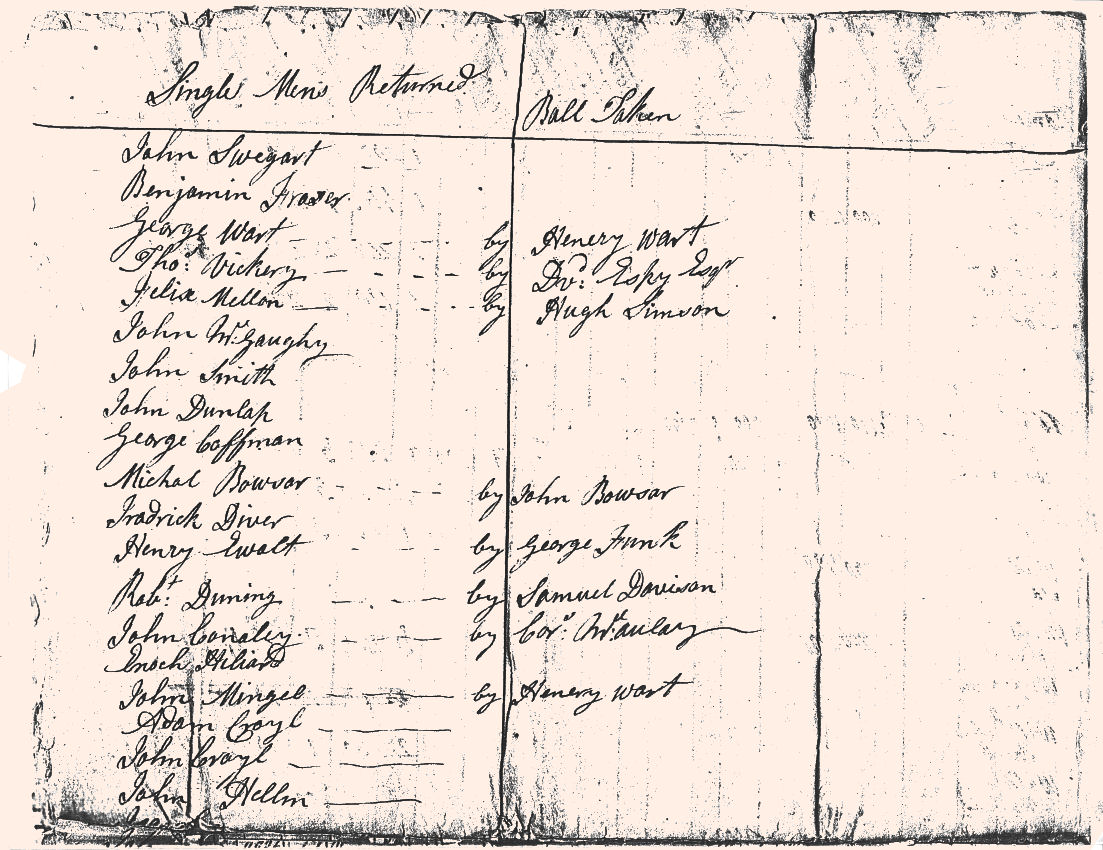 Single Mens Returned
Ball Taken
John Swegart
Benjamin Fraser
George Wart by Henery Wart
Tho.s Vickery by Dv.d Espy Esqr
Felix Mellon by Hugh Simson
John Mc.Gaughy
John Smith
John Dunlap
George Coffman
Michal Bowsar by John Bowsar
Fradrick Diver
Henry Ewalt by George Funk
Rob.t Duning by Samuel Davison
John Conaley by Cor.s Mc.aulay
Enoch Hiliard
John Mingel by Henery Wart
Adam Croyl
John Croyl
John Hellm